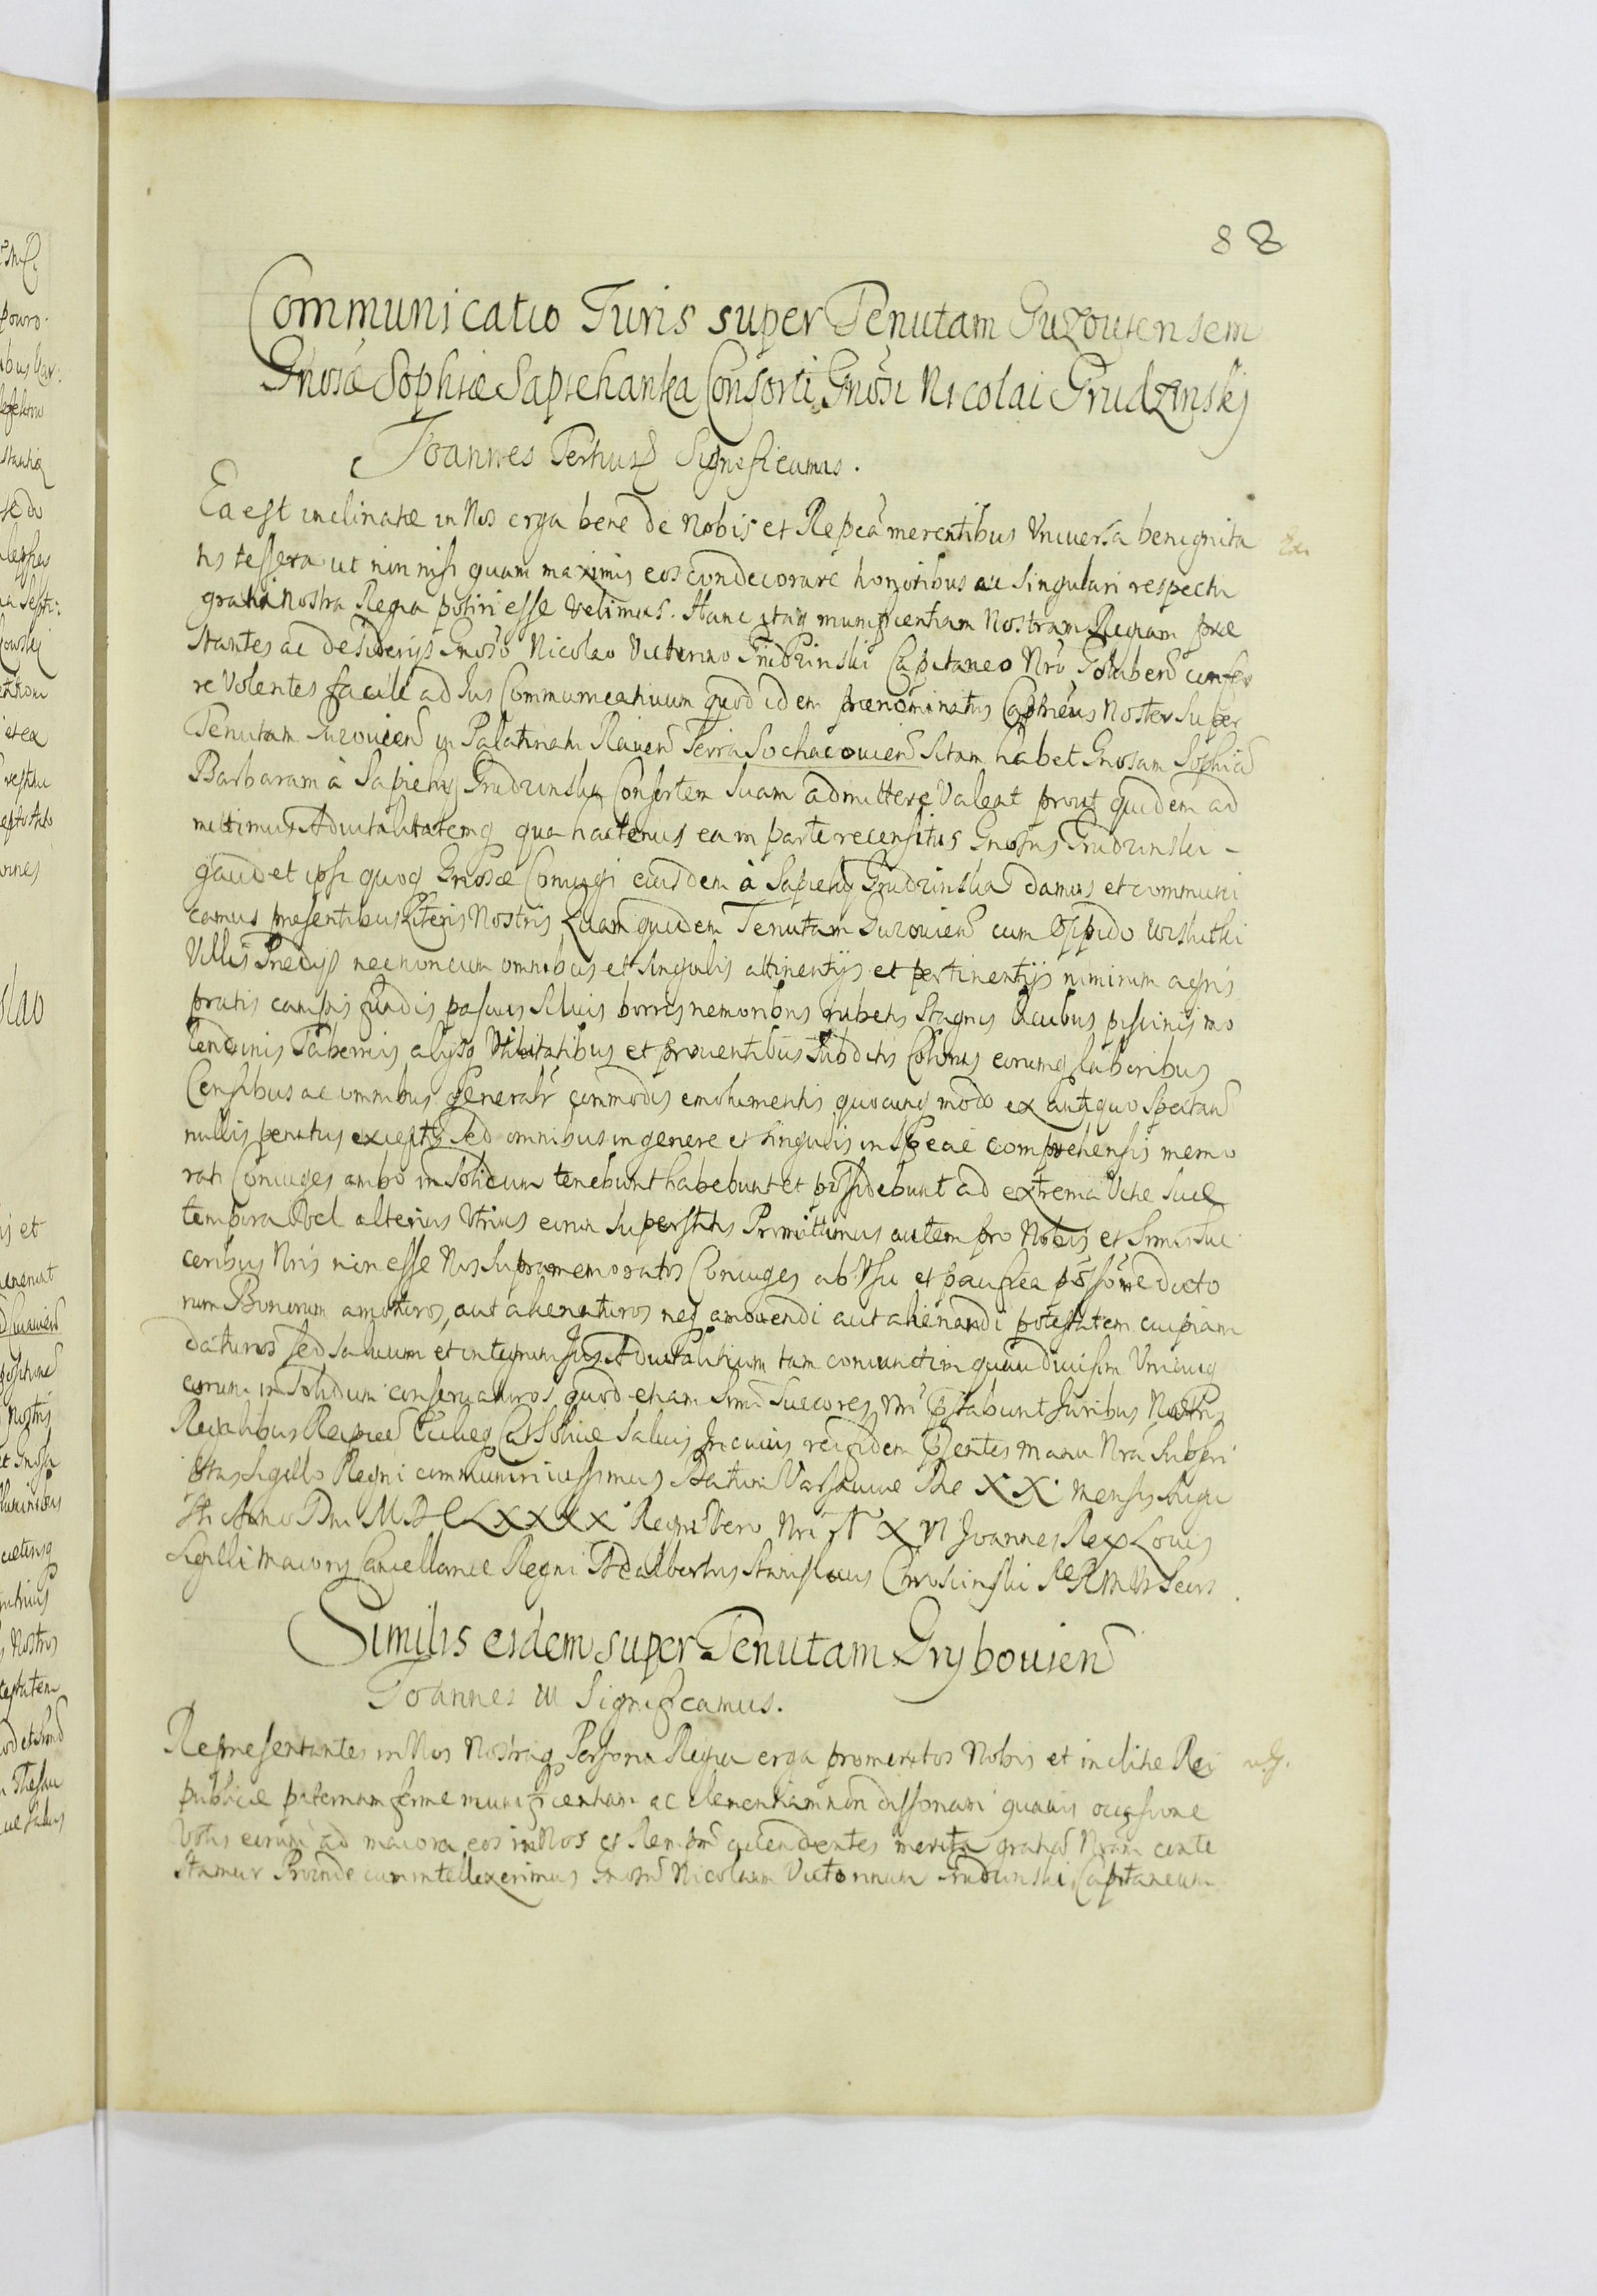 88
Communicatio Juris super Tenutam Guzouiensem
Gnosæ Sophiæ Sapiehanka Consorti Gnosi Nicolai Grudzinskj
Joannes Tertius Significamus.
Ea est inclinatæ in Nos erga bene de Nobis et Repca merentibus Vniuersa benignita
tis tessera ut non nisi quam maximis eos condecorare honoribus ac singulari respectu
gratia Nostra Regia potiri esse velimus. Hanc itaq munificentiam Nostram Regiam præ
stantes ac desiderijs Gnoso Nicolao Victorino Grudzinski Capitaneo Nro Goluben confer
re Volentes facile ad Jus Communicatiuum quod idem prænominatus Capneus Noster super
Tenutam Guzouien in Palatinatu Rauen Terra Sochaczouien sitam habet Gnosam Sophia
Barbaram à Sapiehis Grudzinska Consortem suam admittere Valeat prout quidem ad
mittimus Aduitalitatemq qua hactenus ea in parte recensitus Gnosus Grudzinski -
gaudet ipsi quoq Gnosæ Coniugi eiusdem à Sapiehis Grudzinska damus et communi
camus præsentibus Literis Nostris Quam quidem Tenutam Guzouien cum Oppido Wiskitki
Villis Prædijs necnon cum omnibus et singulis attinentijs et pertinentijs nimirum agris
pratis campis fundis pascuis siluis borris nemoribus rubetis stagnis lacubus piscinis mo
lendinis Tabernis alijsq Vtilitatibus et prouentibus subditis Colonis eorumq laboribus
Censibus ac omnibus generalr commodis emolumentis quocunq modo ex antiquo spectan
nullis penitus exceptis sed omnibus in genere et singulis in specie comprehensis memo
rati Coniuges ambo in solidum tenebunt habebunt et possidebunt ad extrema Vitæ suæ
tempora vel alterius vtrius eorum superstitis Promittimus autem pro Nobis et Srmis Suc
coribus Nris non esse Nos supramemoratos Coniuges ab Vsu et paufica possone dicto
rum Bonorum amoturos, aut alienaturos neq amouendi aut alienandi potestatem cuipiam
daturos sed saluum et integrum Jus Aduitalitium tam coniunctim quam diuisim Vnicuiq
eorum in solidum conseruaturos quod etiam Srmi Succores Nri pstabunt Juribus Nostris
Regalibus Reipcæ Ecclæq Catholicæ saluis In cuius rei fidem psentes manu Nra subscri
ptas sigillo Regni communiri iussimus Datum Varsauiæ Die XX mensis Augu
sti Anno Dni MDCLXXXX Regni Vero Nri Joannes Rex Locus
Sigilli maioris Cancellariæ Regni Adalbertus Stanislaus Chroscinski SRMtis Secrs.
Similis eidem super Tenutam Grybouien
Joannes III Significamus.
Repræsentantes in Nos Nostraq Persona Regia erga promeritos Nobis et inclitæ Rei
publicæ paternam ferme munificentiam ac clementiam non dissonam quauis occasione
Votis eorum ad maiora eos in Nos et Rempm merita gratia Nram conte
stamur Proinde cum intellexerimus Gnosum Nicolaum Victorinum Grudzinski Capitaneum